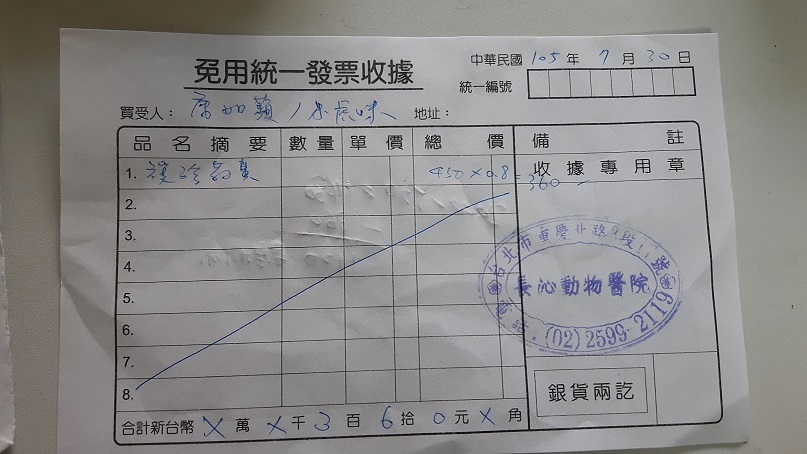 免用統一發票收據
中華民國 105 年 7 月 30 日
統一編號
買受人： 地址：
品名摘要 數量 單價 總價 備註
收據專用章
1. 複診 450×0.8=360
2.
3.
4.
5.
6.
7.
8.
台北市重慶北路 段 號
長沁動物醫院
(02)2599-2119
銀貨兩訖
合計新台幣 X 萬 X 千 3 百 6 拾 0 元 X 角